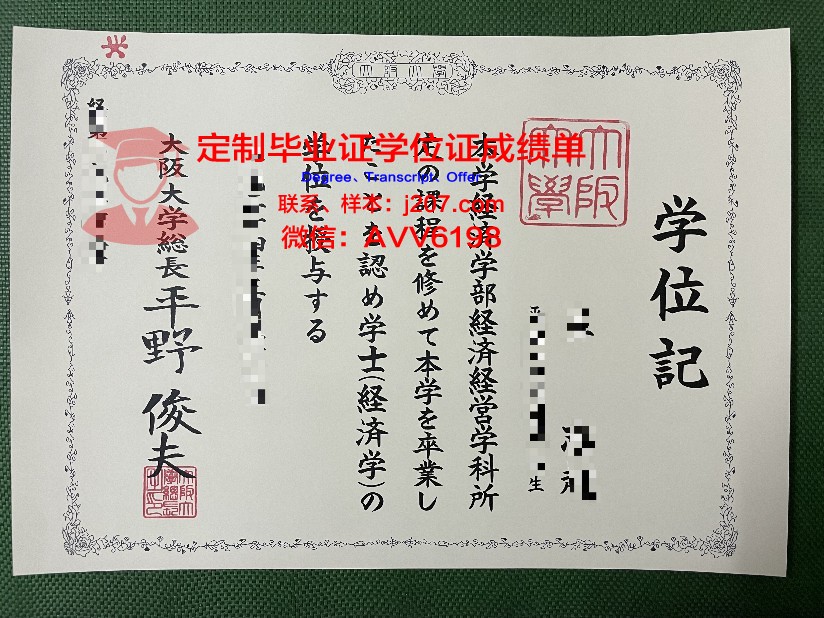 学位記
大阪
大學
平
生
本学経済学部経済経営学科所
定の課程を修めて本学を卒業し
たことを認め学士(経済学)の
学位を授与する
大阪大学総長 平野俊夫
定制毕业证学位证成绩单
Degree、Transcript、Offer
联系、样本：
微信：AVV6198